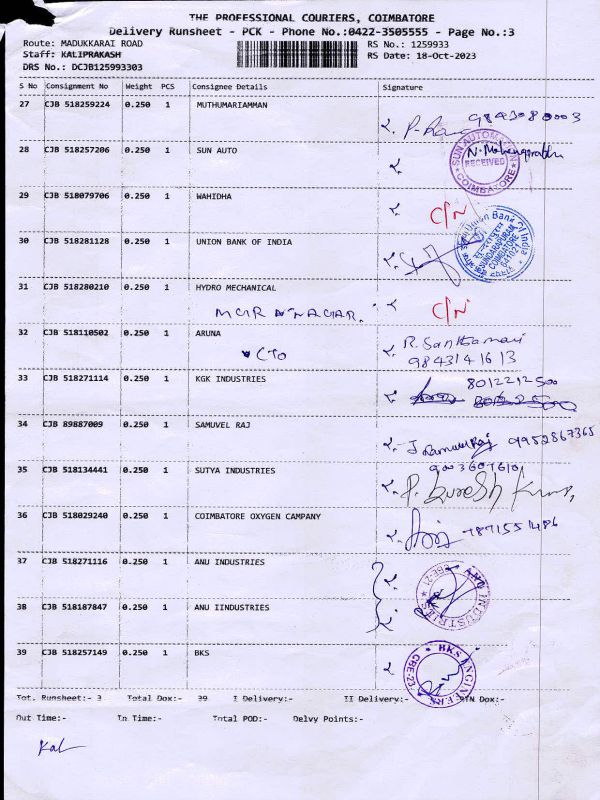 THE PROFESSIONAL COURIERS, COIMBATORE
Delivery Runsheet - PCK - Phone No.:0422-3505555 - Page No.:3
Route: MADUKKARAI ROAD RS No.: 1259933
Staff: KALIPRAKASH RS Date: 18-Oct-2023
DRS No.: DCJB125993303
S No Consignment No Weight PCS Consignee Details Signature
27 CJB 518259224 0.250 1 MUTHUMARIAMMAN
9843080003
28 CJB 518257206 0.250 1 SUN AUTO
SUN AUTOMATION RECEIVED COIMBATORE
29 CJB 518079706 0.250 1 WAHIDHA
C/N
30 CJB 518281128 0.250 1 UNION BANK OF INDIA
Union Bank Of India SUNDARAPURAM COIMBATORE 641021
31 CJB 518280210 0.250 1 HYDRO MECHANICAL
MGR NAGAR. C/N
32 CJB 518110502 0.250 1 ARUNA
CTO 9843141613
33 CJB 518271114 0.250 1 KGK INDUSTRIES
8012212500
34 CJB 89887009 0.250 1 SAMUVEL RAJ
9952867365
35 CJB 518134441 0.250 1 SUTYA INDUSTRIES
P. Suresh Kumar
36 CJB 518029240 0.250 1 COIMBATORE OXYGEN CAMPANY
37 CJB 518271116 0.250 1 ANU INDUSTRIES
ANU INDUSTRIES CBE-21
38 CJB 518187847 0.250 1 ANU IINDUSTRIES
39 CJB 518257149 0.250 1 BKS
BKS ENGINEERS CBE-21
Tot. Runsheet:- 3 Total Dox:- 39 I Delivery:- II Delivery:- RTN Dox:-
Out Time:- In Time:- Total POD:- Delvy Points:-